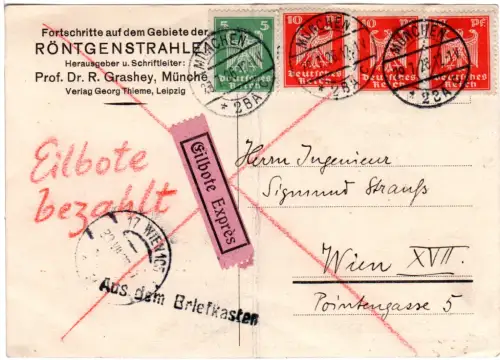 Fortschritte auf dem Gebiete der
RÖNTGENSTRAHLE
Herausgeber u. Schriftleiter:
Prof. Dr. R. Grashey, Münche
Verlag Georg Thieme, Leipzig
5 5
Deutsches
Reich
10 PF
Deutsches
Reich
10 PF
Deutsches
Reich
10 PF
Deutsches
Reich
MÜNCHEN
* 2BA
MÜNCHEN
* 2BA
MÜNCHEN
* 2BA
Eilbote
bezahlt
Eilbote Exprès
Herrn Ingenieur
Sigmund Strauss
Wien XVII.
Pointengasse 5
17 WIEN
Aus dem Briefkasten